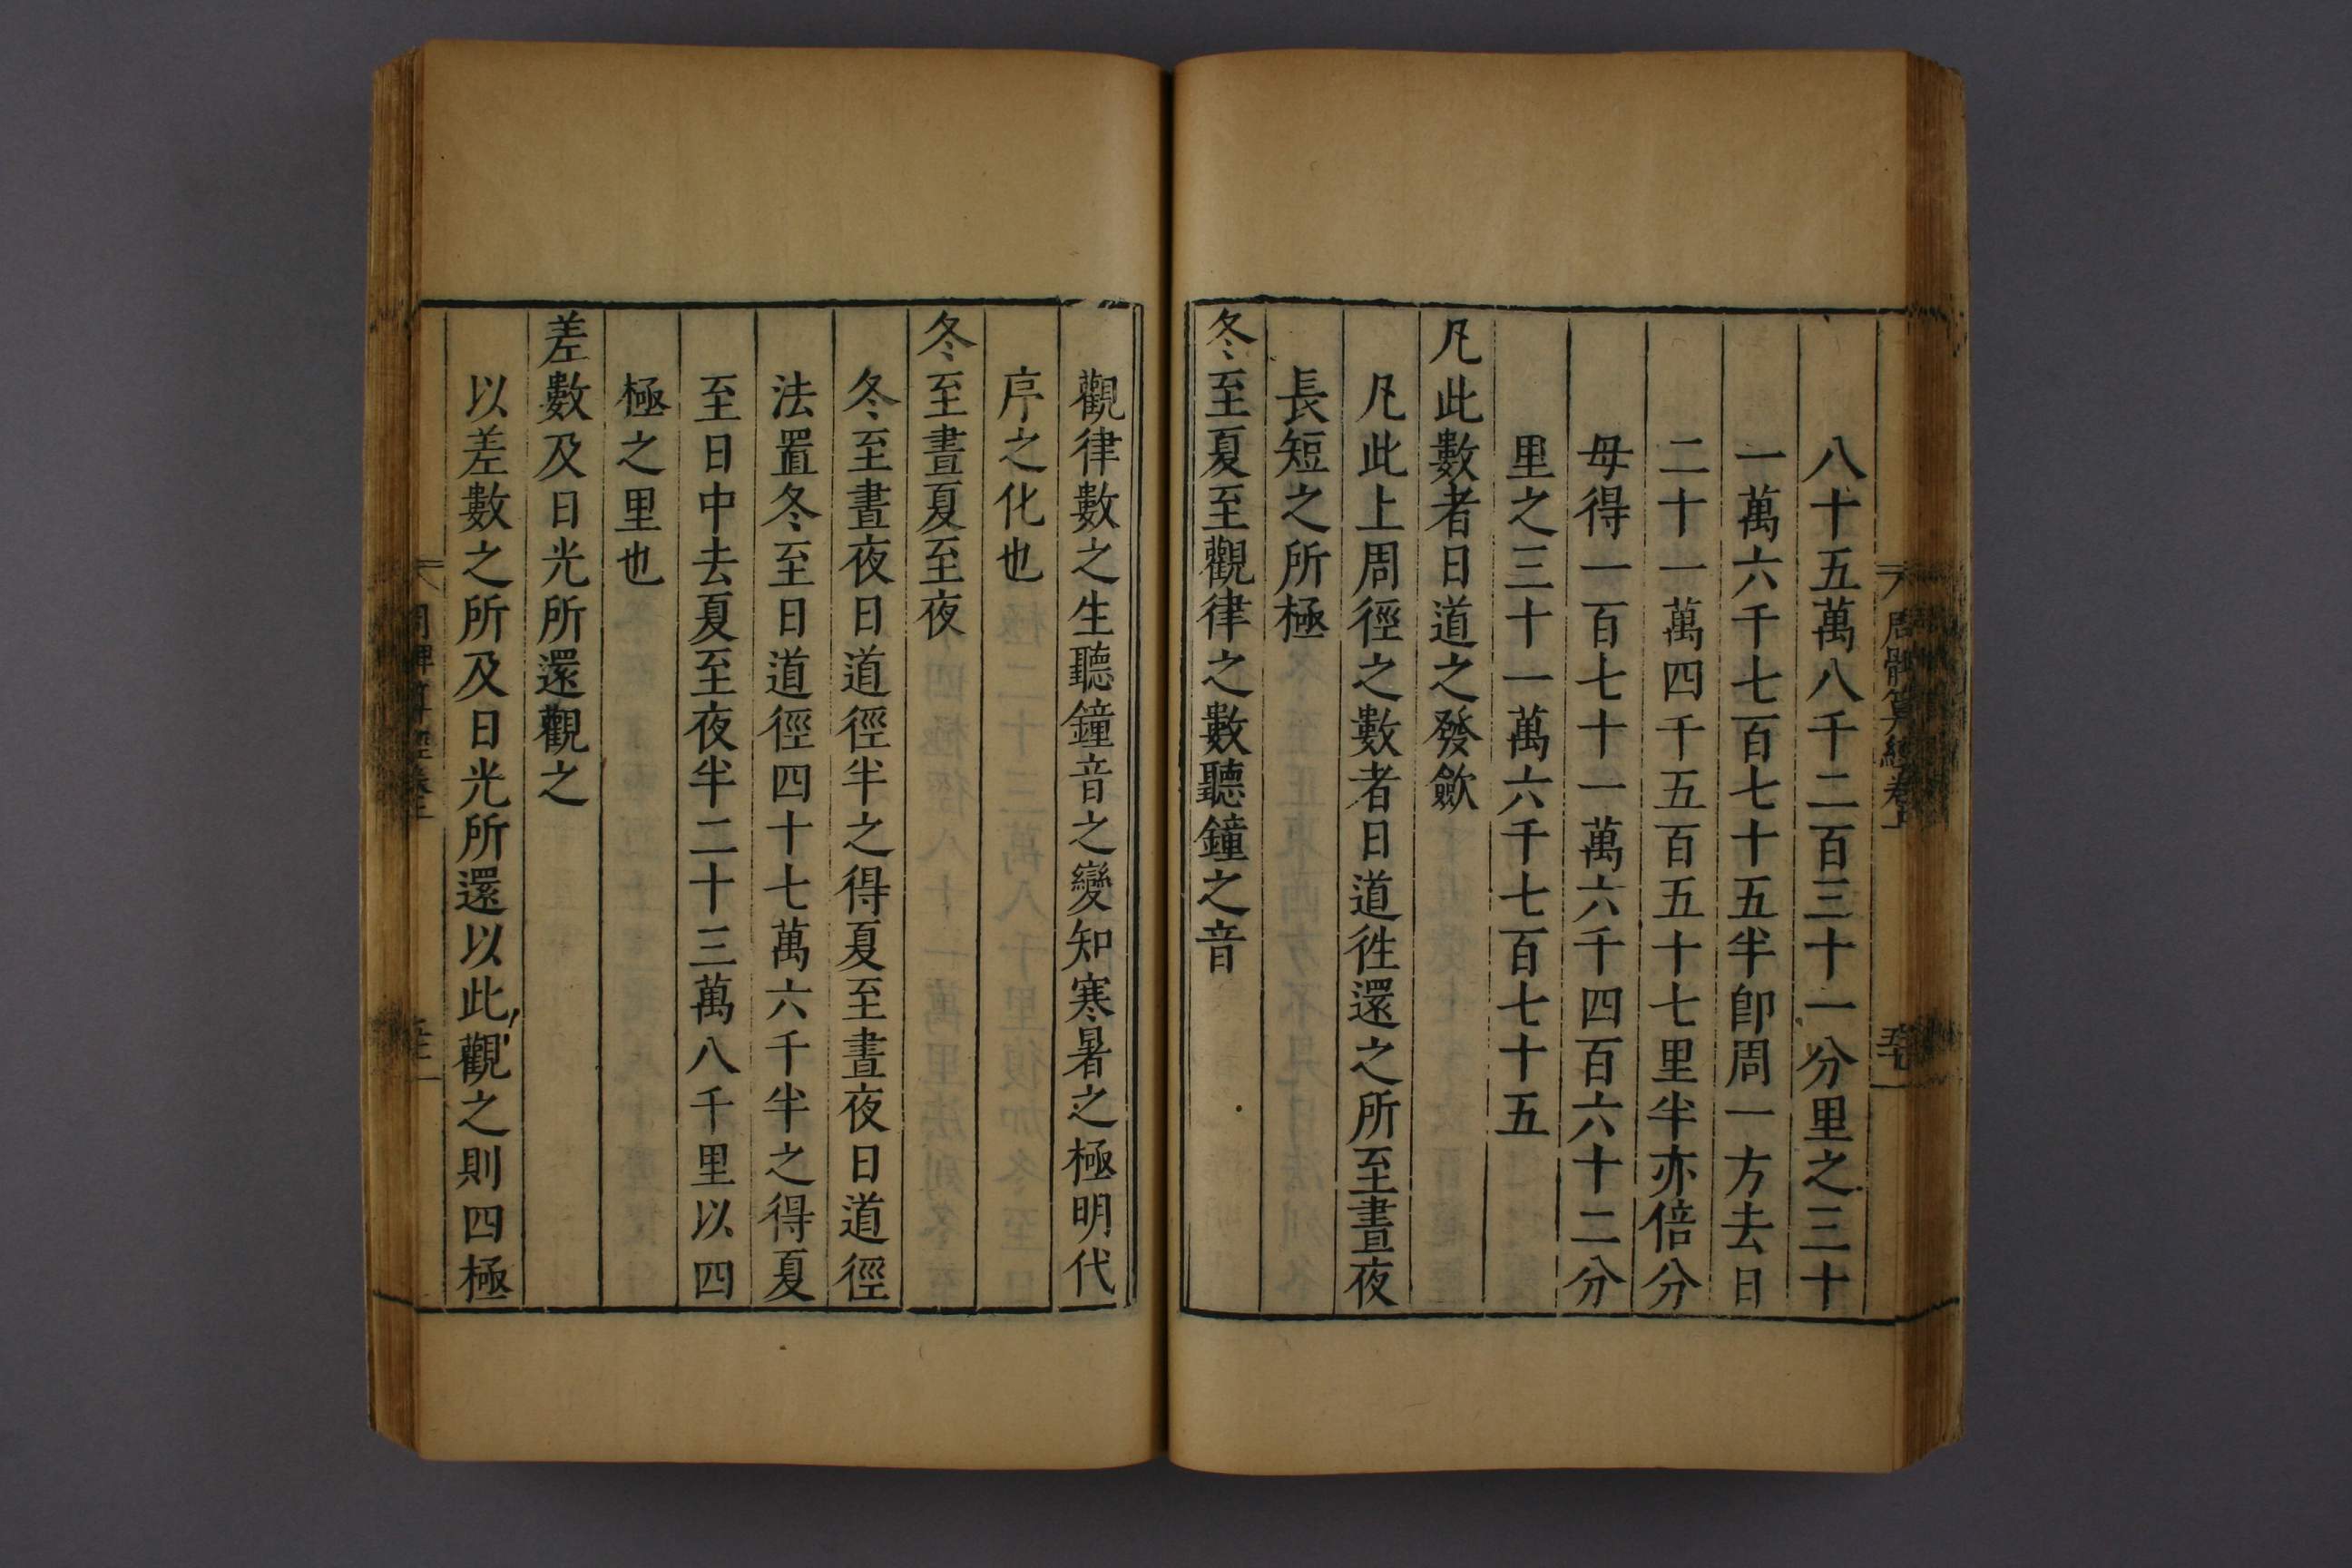 周髀算經卷上
八十五萬八千二百三十一分里之三十
一萬六千七百七十五半卽周一方去日
二十一萬四千五百五十七里半亦倍分
母得一百七十一萬六千四百六十二分
里之三十一萬六千七百七十五
凡此數者日道之發歛
凡此上周徑之數者日道徃還之所至晝夜
長短之所極
冬至夏至觀律之數聽鐘之音
觀律數之生聽鐘音之變知寒暑之極明代
序之化也
冬至晝夏至夜
冬至晝夜日道徑半之得夏至晝夜日道徑
法置冬至日道徑四十七萬六千半之得夏
至日中去夏至夜半二十三萬八千里以四
極之里也
差數及日光所還觀之
以差數之所及日光所還以此觀之則四極